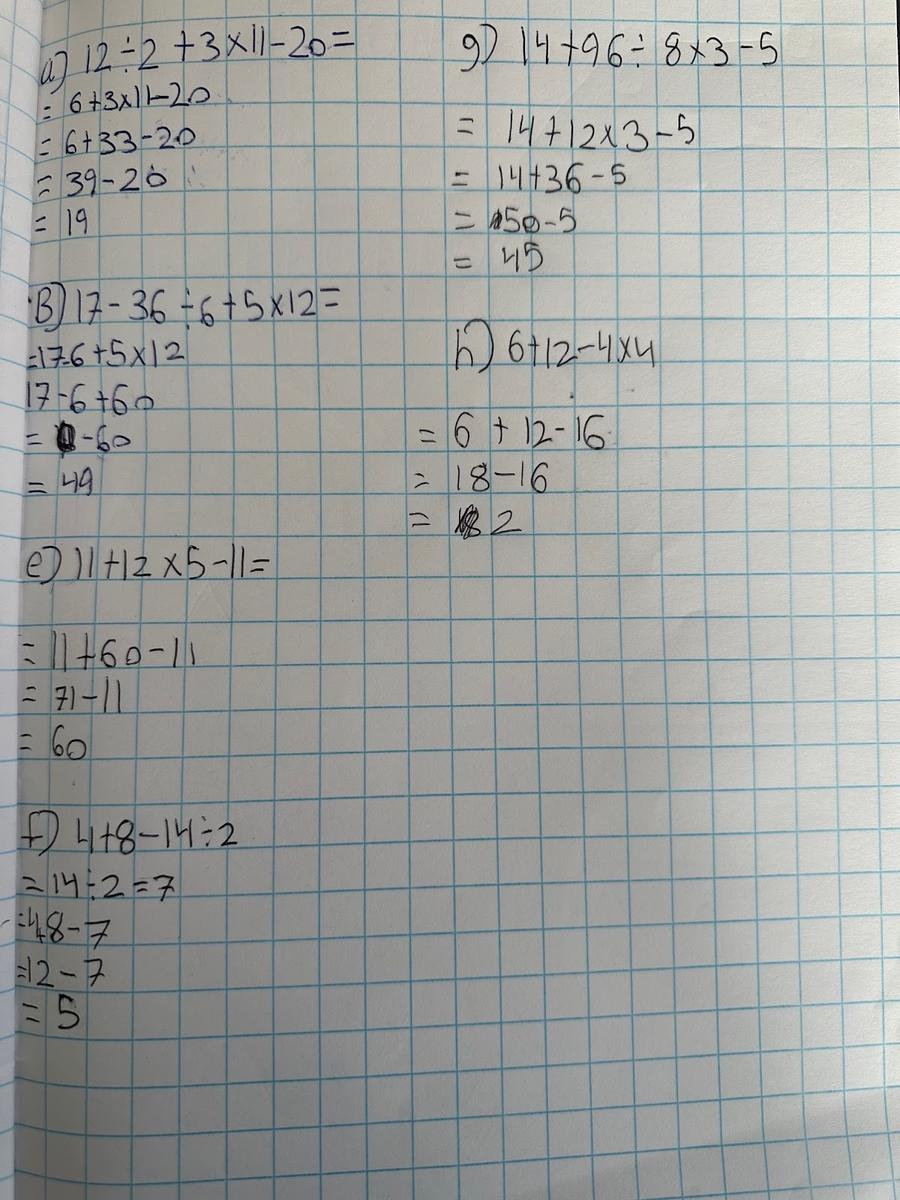 a) 12÷2 +3×11-20=
= 6+3×11-20
= 6+33-20
= 39-20
= 19
B) 17-36÷6+5×12=
=17-6+5×12
17-6+60
= -60
= 49
e) 11+12×5-11=
= 11+60-11
= 71-11
= 60
f) 4+8-14÷2
=14÷2=7
=48-7
=12-7
= 5
g) 14+96÷8×3-5
= 14+12×3-5
= 14+36-5
= 50-5
= 45
h) 6+12-4×4
= 6 + 12-16
= 18-16
= 2